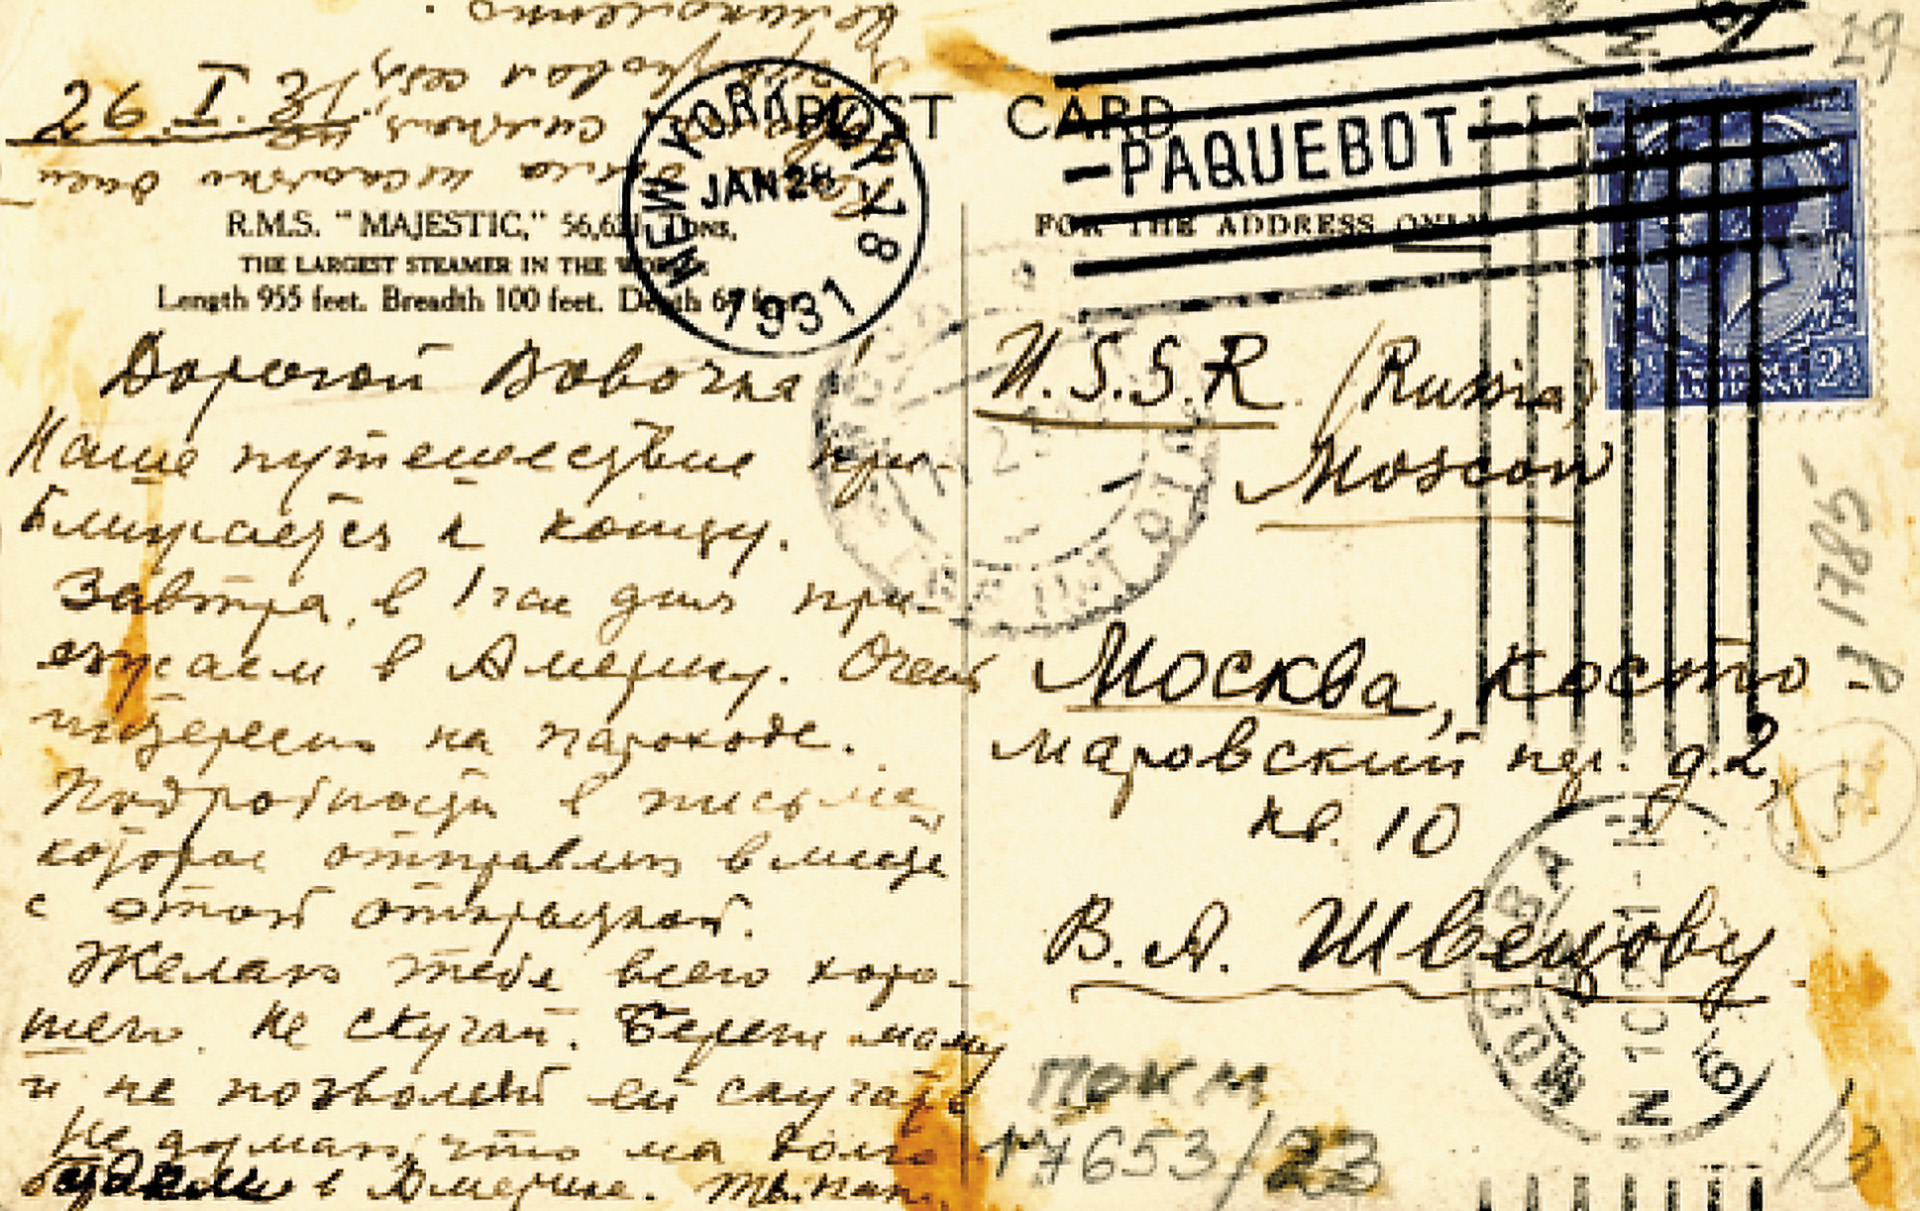 26.I.31.
POST CARD
R.M.S. "MAJESTIC," 56,621 TONS,
THE LARGEST STEAMER IN THE WORLD.
Length 955 feet. Breadth 100 feet. Depth
FOR THE ADDRESS ONLY
NEW YORK, N.Y. 78
JAN 28
1931
PAQUEBOT
Дорогой Вовочка!
Наше путешествие при-
ближается к концу.
Завтра, в 1 час дня при-
езжаем в Америку. Очень
интересно на пароходе.
Подробности в письме,
которое отправлю вместе
с этой открыткой.
Желаю тебе всего хоро-
шего. Не скучай. Береги маму
и не позволяй ей скучать
Не думаю, что мы долго
будем в Америке. Тв. папа.
U.S.S.R. (Russia)
Moscow
Москва, Косто
маровский пер. д.2,
кв. 10
В. А. Швецову
МОСКВА
ПОКМ
17653/23
1785
29
2½